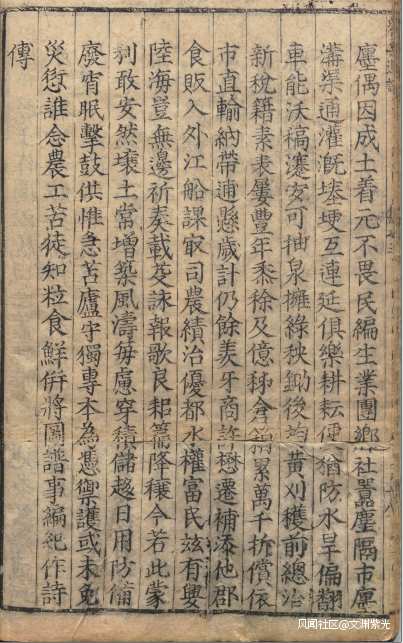 廛偶因成土着元不畏民編生業團鄉社嚻塵隔市廛
溝渠通灌溉塍埂互連延俱樂耕耘便猶防水旱偏翻
車能沃槁瀽穴可抽泉擁綠秧鋤後均黃刈穫前總治
新稅籍素表屢豐年黍稌及億秭倉箱累萬千折償依
市直輸納帶逋懸歲計仍餘羨牙商許懋遷補添他郡
食販入外江船課最司農績治優都水權富民茲有要
陸海豈無邊祈奏載芟詠報歌良耜篇降穰今若此蒙
利敢安然壤土常增築風濤每慮穿積儲趍日用防備
廢宵眠擊鼓供惟急苦廬守獨專本為憑禦護或未免
災愆誰念農工苦徒知粒食鮮併將圖譜事編紀作詩
傳
风闻社区@文洲紫光